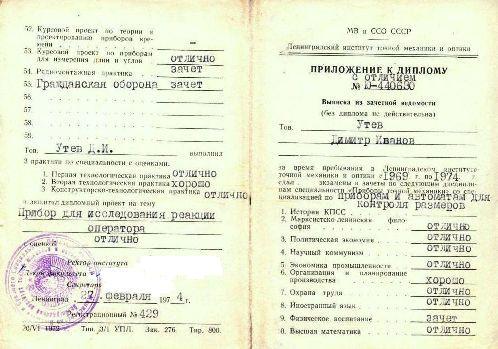 52. Курсовой проект по теории и
проектированию приборов времени —
53. Курсовой проект по приборам
для измерения длин и углов отлично
54. Радиомонтажная практика зачет
55. Гражданская оборона зачет
56.
57.
58.
59.
Тов. Утев Д.И. выполнил
3 практики по специальности с оценками.
1. Первая технологическая практика отлично
2. Вторая технологическая практика хорошо
3. Конструкторско-технологическая практика отлично
и защитил дипломный проект на тему
Прибор для исследования реакции
оператора
оценка отлично
Ректор института
Декан факультета
Секретарь
Ленинград 27 февраля 1974 г.
Регистрационный № 429
26/VI 1972 Тип. Э/1 УПЛ. Зак. 276. Тир. 800.
МВ и ССО СССР
Ленинградский институт точной механики и оптики
ПРИЛОЖЕНИЕ К ДИПЛОМУ
с отличием
№ Ю-440630
Выписка из зачетной ведомости
(без диплома не действительна)
Тов. Утев
Димитр Иванов
за время пребывания в Ленинградском институте
точной механики и оптики с 1969 г. по 1974 г.
сдал экзамены и зачеты по следующим дисциплинам
специальности «Приборы точной механики» со специализацией по
приборам и автоматам для
контроля размеров
1. История КПСС отлично
2. Марксистско-ленинская философия отлично
3. Политическая экономия отлично
4. Научный коммунизм отлично
5. Экономика промышленности отлично
6. Организация и планирование
производства хорошо
7. Охрана труда отлично
8. Иностранный язык отлично
9. Физическое воспитание зачет
8. Высшая математика отлично